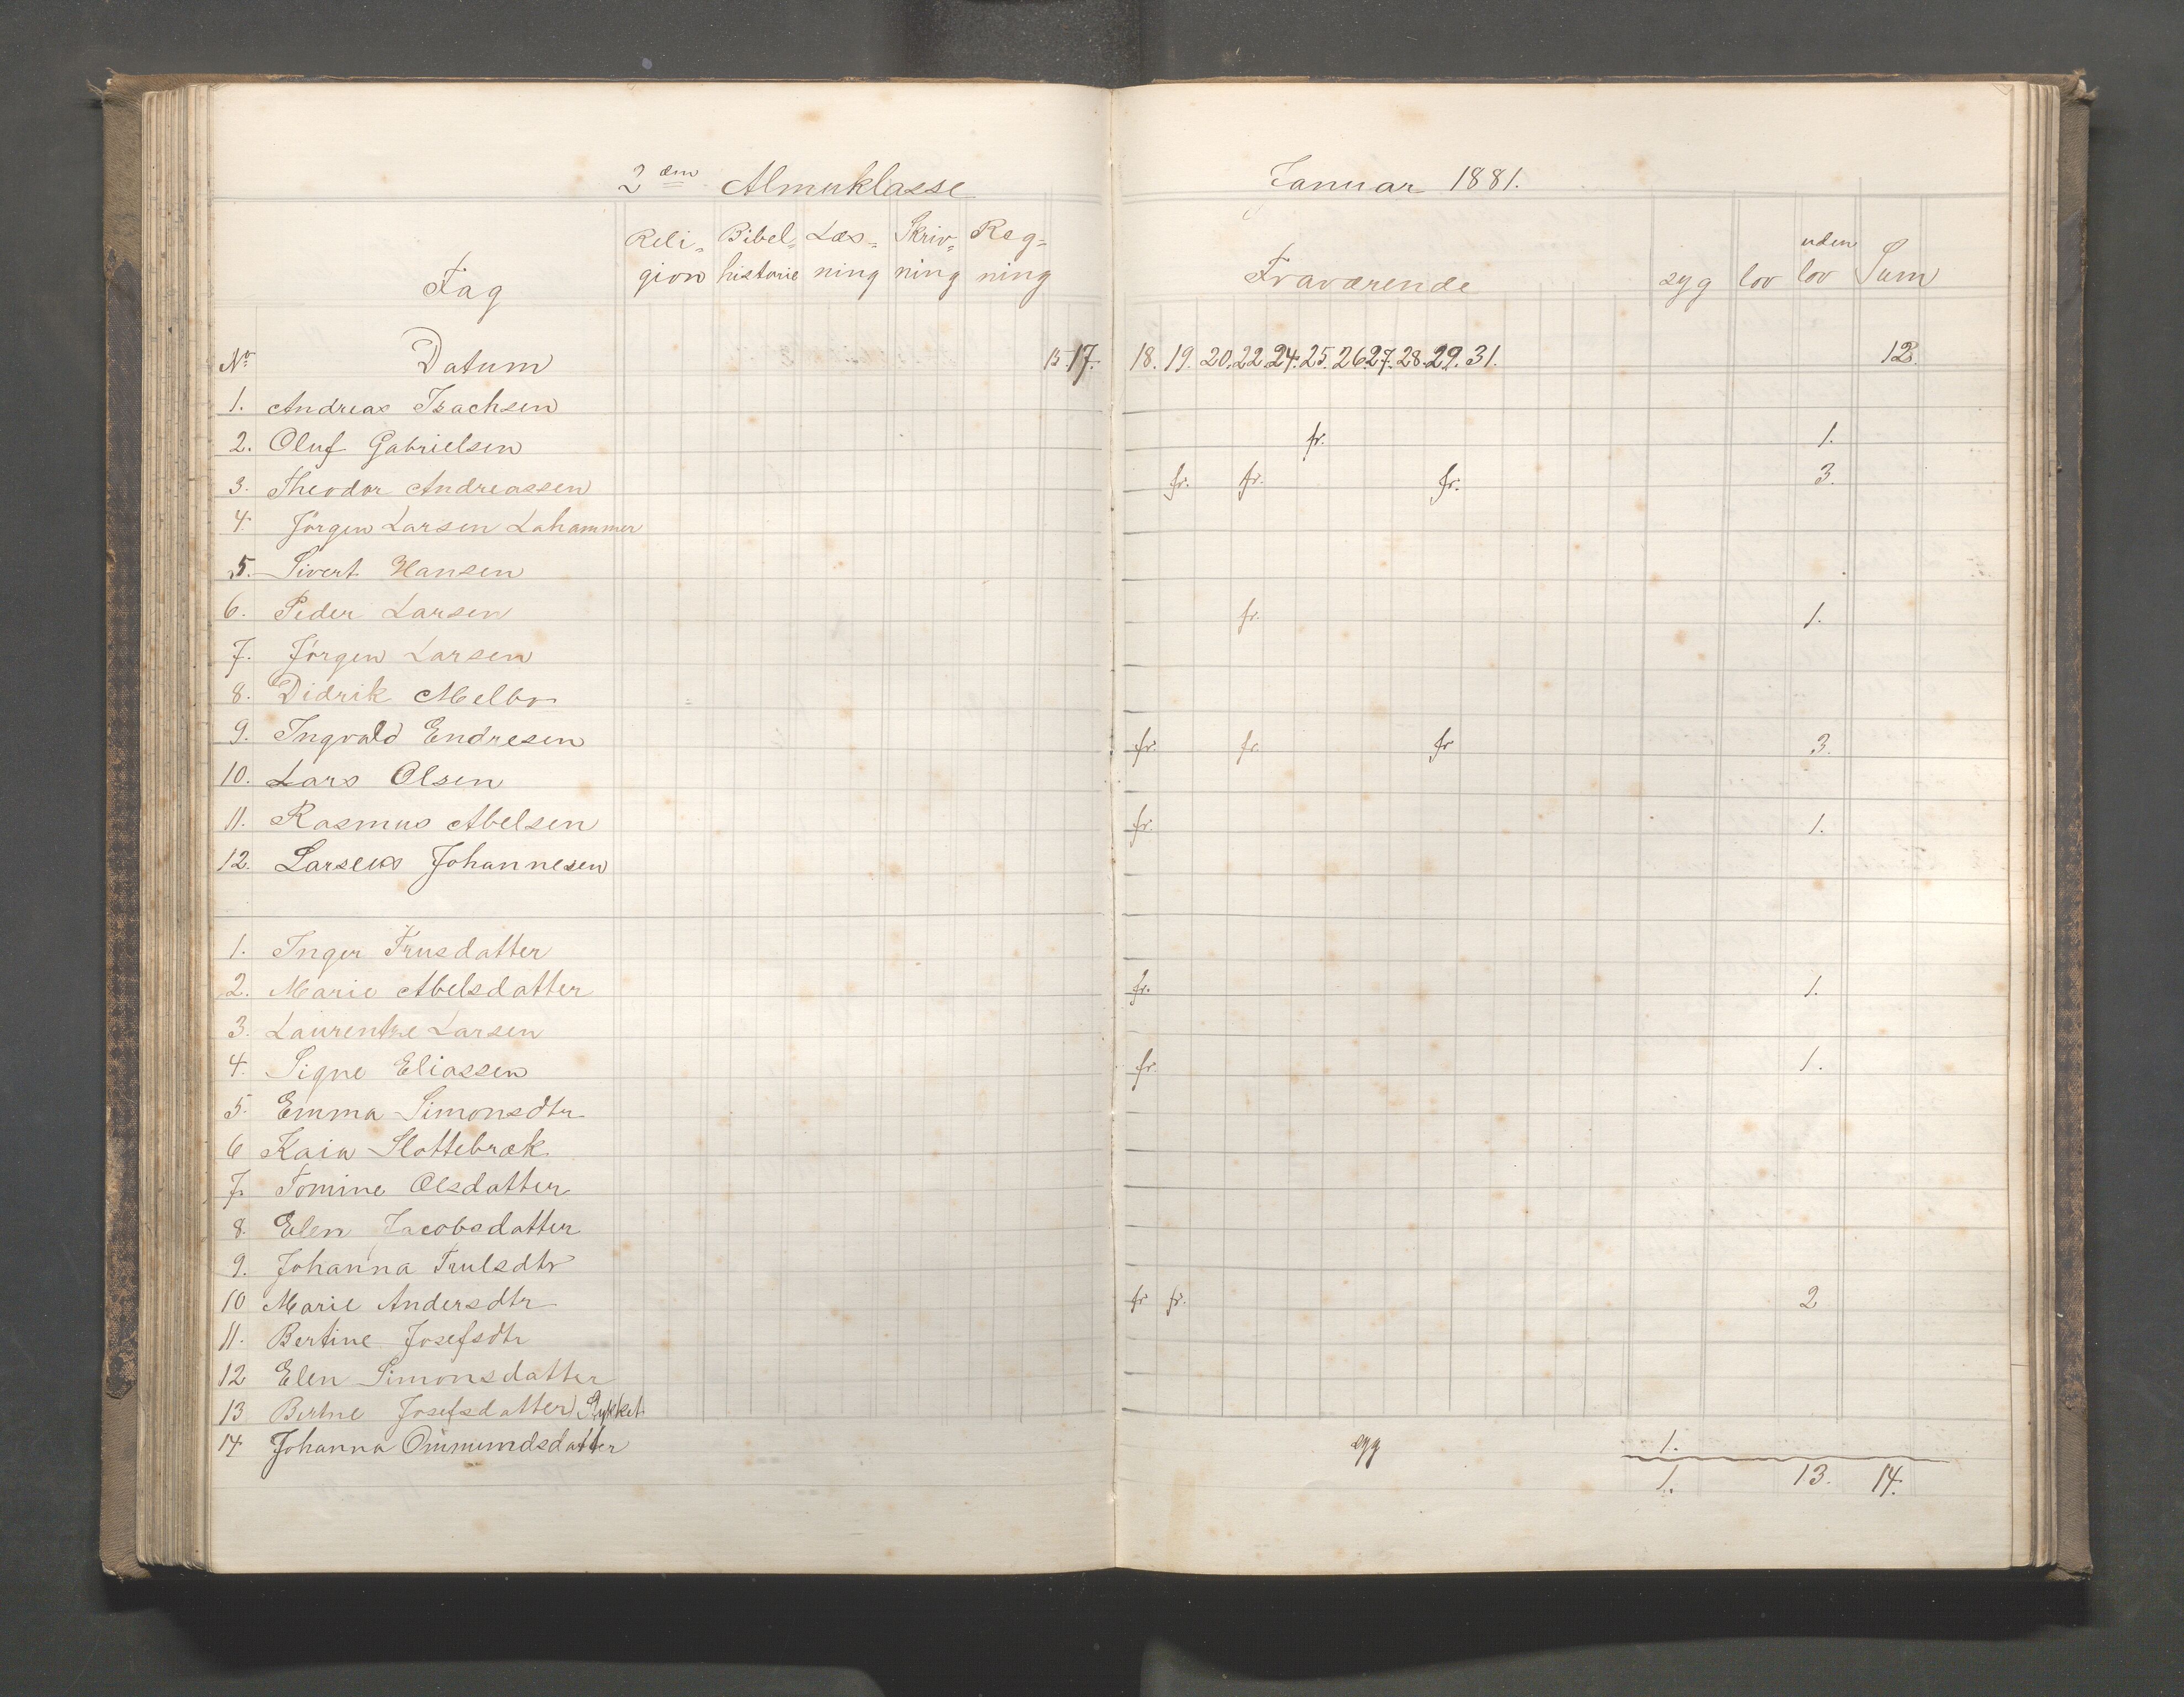 2den Almuklasse Januar 1881.
Reli- Bibel- Læs- Skriv- Reg- uden
Fag gion historie ning ning ning Fraværende syg lov lov Sum
No Datum 15. 17. 18. 19. 20. 22. 24. 25. 26. 27. 28. 29. 31. 12.
1. Andreas Isachsen
2. Oluf Gabrielsen fr. 1.
3. Theodor Andreassen fr. fr. fr. 3.
4. Jörgen Larsen Lahammer
5. Sivert Hansen
6. Peder Larsen fr. 1.
7. Jörgen Larsen
8. Didrik Melbo
9. Ingvald Endresen fr. fr. fr 3.
10. Lars Olsen
11. Rasmus Abelsen fr. 1.
12. Johannesen
1. Inger Trusdatter
2. Marie Abelsdatter fr. 1.
3. Laurentze Larsen
4. Signe Eliassen fr. 1.
5. Emma Simonsdtr
6 Kaia Slottebræk
7. Tomine Olsdatter
8. Elen Jacobsdatter
9. Johanna Trulsdtr
10 Marie Andersdtr fr fr. 2
11. Bertine Josefsdtr
12 Elen Simonsdatter
13 Bertine Josefsdatter
14 Johanna Ommundsdatter syg 1.
1. 13. 14.